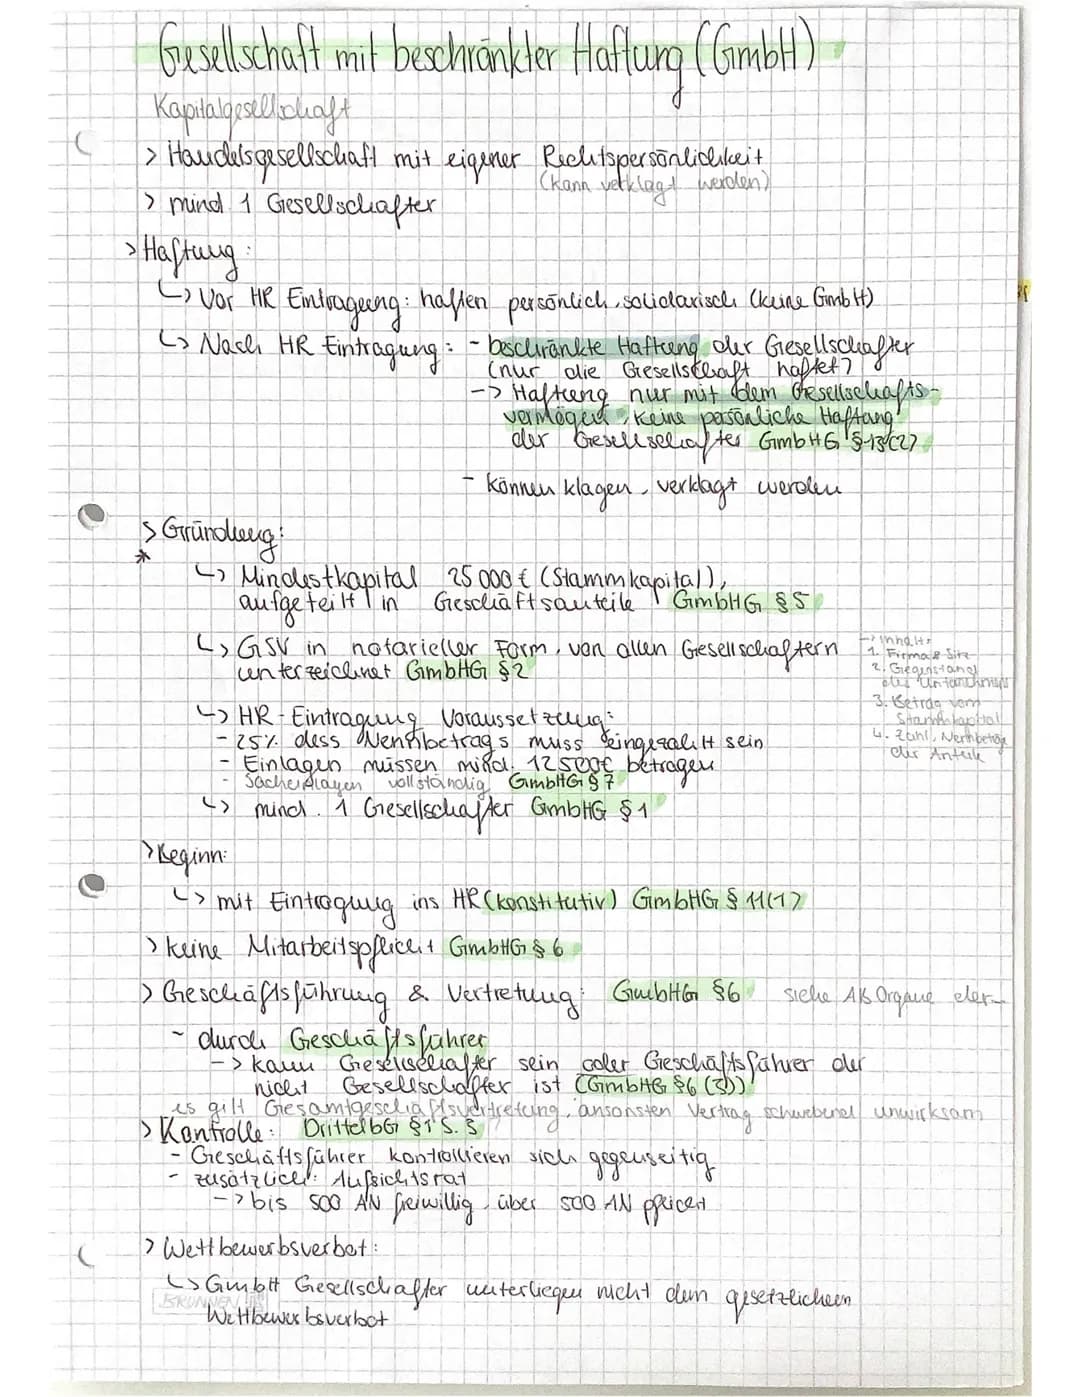 Gesellschaft mit beschränkter Haftung (GmbH)
Kapitalgesellschaft
> Handelsgesellschaft mit eigener Rechtspersönlichkeit
(kann verklagt werden)
> mind. 1 Gesellschafter
> Haftung:
↳ Vor HR Eintragung: haften persönlich, solidarisch (keine GmbH)
↳ Nach HR Eintragung: - beschränkte Haftung der Gesellschafter
(nur die Gesellschaft haftet)
-> Haftung nur mit dem Gesellschafts-
vermögen, keine persönliche Haftung
der Gesellschafter GmbHG §13(2)
- können klagen, verklagt werden
> Gründung:
*
↳ Mindestkapital 25 000 € (Stammkapital),
aufgeteilt in Geschäftsanteile GmbHG §5
↳ GSV in notarieller Form, von allen Gesellschaftern
unterzeichnet GmbHG §2
-> Inhalt:
1. Firma & Sitz
2. Gegenstand
des Unternehmens
3. Betrag vom
Stammkapital
4. Zahl, Nennbeträge
der Anteile
↳ HR-Eintragung Voraussetzung:
- 25% dess Nennbetrags muss eingezahlt sein
- Einlagen müssen mind. 12500€ betragen
- Sacheinlagen vollständig GmbHG §7
↳ mind. 1 Gesellschafter GmbHG §1
> Beginn:
↳ mit Eintragung ins HR (konstitutiv) GmbHG §11(1)
> keine Mitarbeitspflicht GmbHG §6
> Geschäftsführung & Vertretung: GmbHG §6 siehe AB Organe der
- durch Geschäftsführer
-> kann Gesellschafter sein oder Geschäftsführer der
nicht Gesellschafter ist (GmbHG §6 (3))
es gilt Gesamtgeschäftsvertretung, ansonsten Vertrag schwebend unwirksam
> Kontrolle: DrittelbG §1 S. 3
- Geschäftsführer kontrollieren sich gegenseitig
- zusätzlich: Aufsichtsrat
-> bis 500 AN freiwillig, über 500 AN pflicht
> Wettbewerbsverbot:
↳ GmbH Gesellschafter unterliegen nicht dem gesetzlichen
BRUNNEN
Wettbewerbsverbot